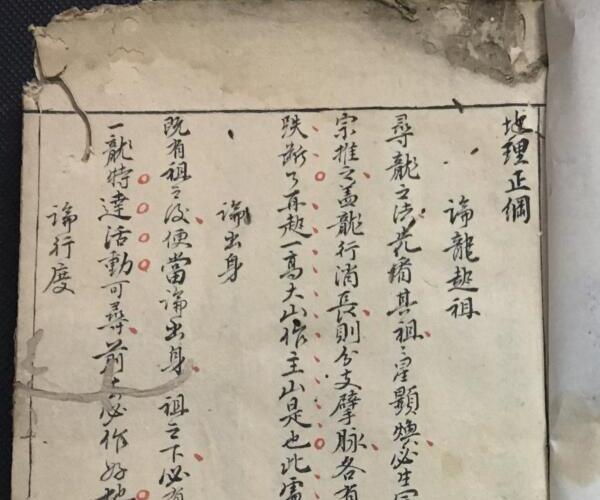 地理正綱
論龍起祖
尋龍之法先猪其祖〻星顯煥必生
宗推之盖龍行消長則分支擘脉各有
跌斷了再起一高大山作主山是也此
論出身
既有祖之後便當論出身祖之下必有
一龍特達活動可尋前去必作好
論行度